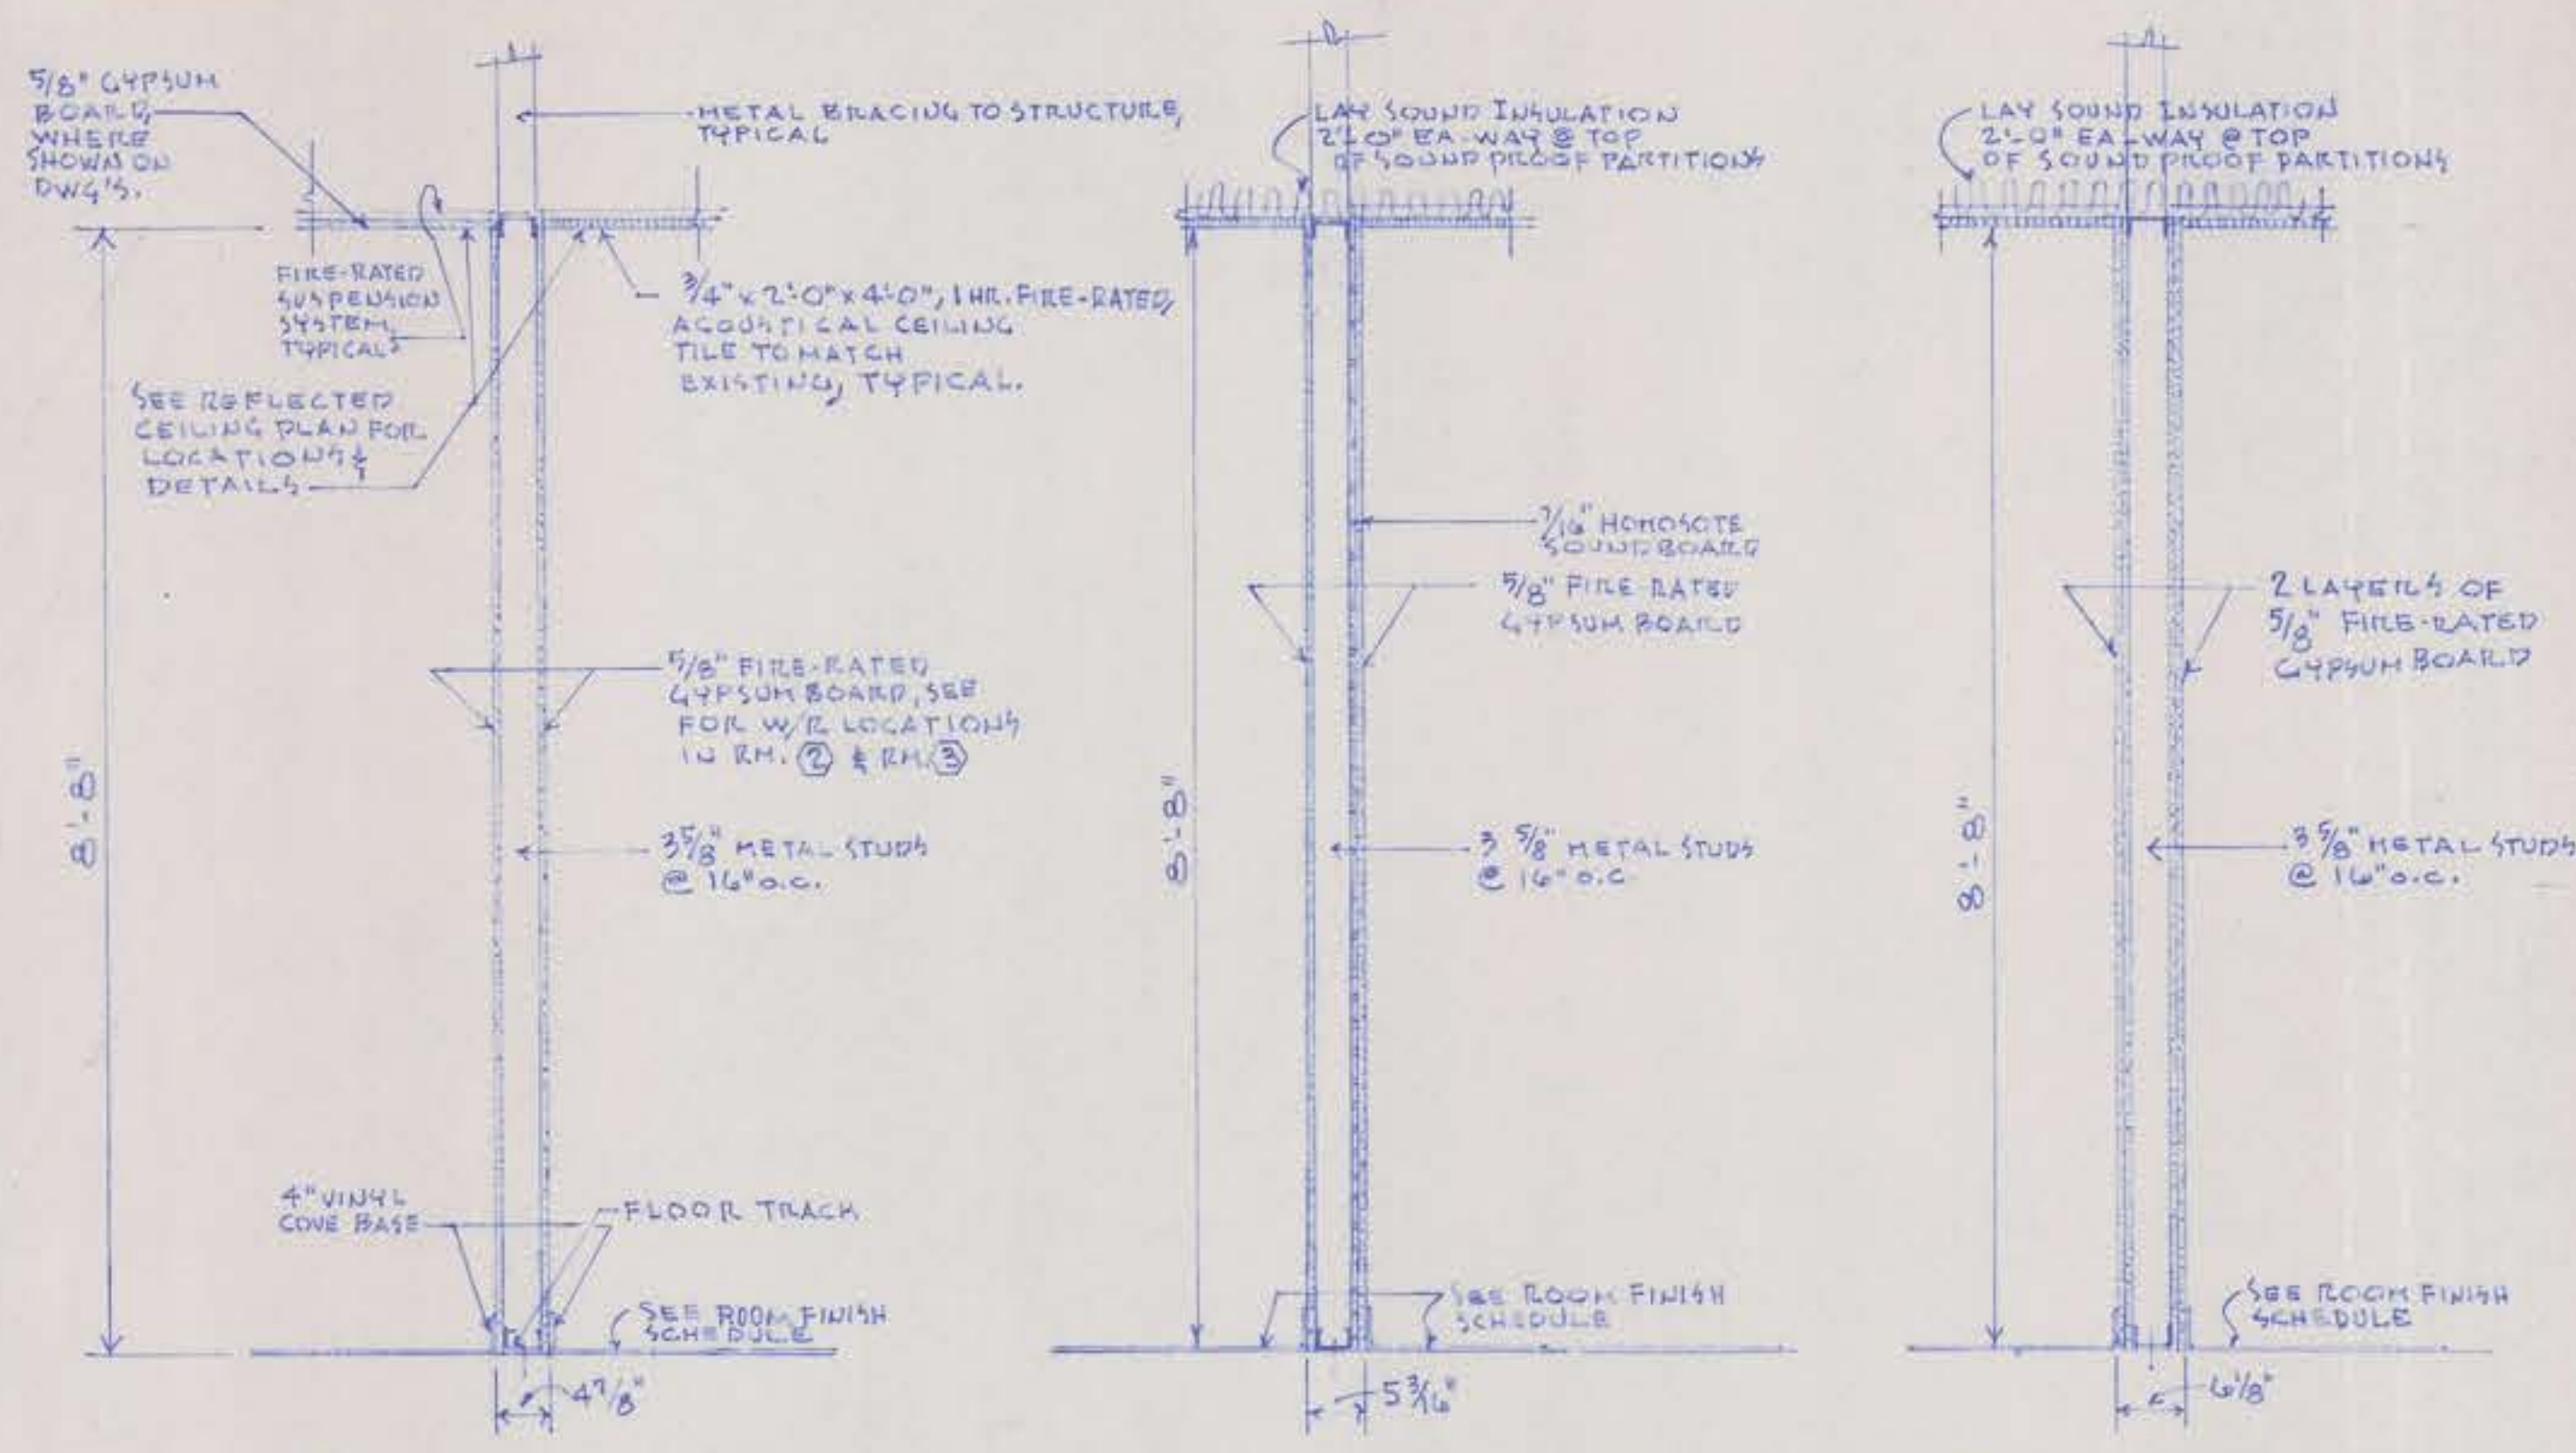 5/8" GYPSUM
BOARD,
WHERE
SHOWN ON
DWG'S.
METAL BRACING TO STRUCTURE,
TYPICAL
FIRE-RATED
SUSPENSION
SYSTEM,
TYPICAL
3/4" x 2'-0" x 4'-0", 1 HR. FIRE-RATED,
ACOUSTICAL CEILING
TILE TO MATCH
EXISTING, TYPICAL.
SEE REFLECTED
CEILING PLAN FOR
LOCATIONS &
DETAILS
5/8" FIRE-RATED
GYPSUM BOARD, SEE
FOR W/R LOCATIONS
IN RM. 2 & RM. 3
8'-8"
3 5/8" METAL STUDS
@ 16" o.c.
4" VINYL
COVE BASE
FLOOR TRACK
SEE ROOM FINISH
SCHEDULE
4 7/8"
LAY SOUND INSULATION
2'-0" EA-WAY @ TOP
OF SOUND PROOF PARTITIONS
7/16" HOMOSOTE
SOUNDBOARD
5/8" FIRE RATED
GYPSUM BOARD
8'-8"
3 5/8" METAL STUDS
@ 16" o.c
SEE ROOM FINISH
SCHEDULE
5 3/16"
LAY SOUND INSULATION
2'-0" EA-WAY @ TOP
OF SOUND PROOF PARTITIONS
2 LAYERS OF
5/8" FIRE-RATED
GYPSUM BOARD
8'-8"
3 5/8" METAL STUDS
@ 16" o.c.
SEE ROOM FINISH
SCHEDULE
6 1/8"